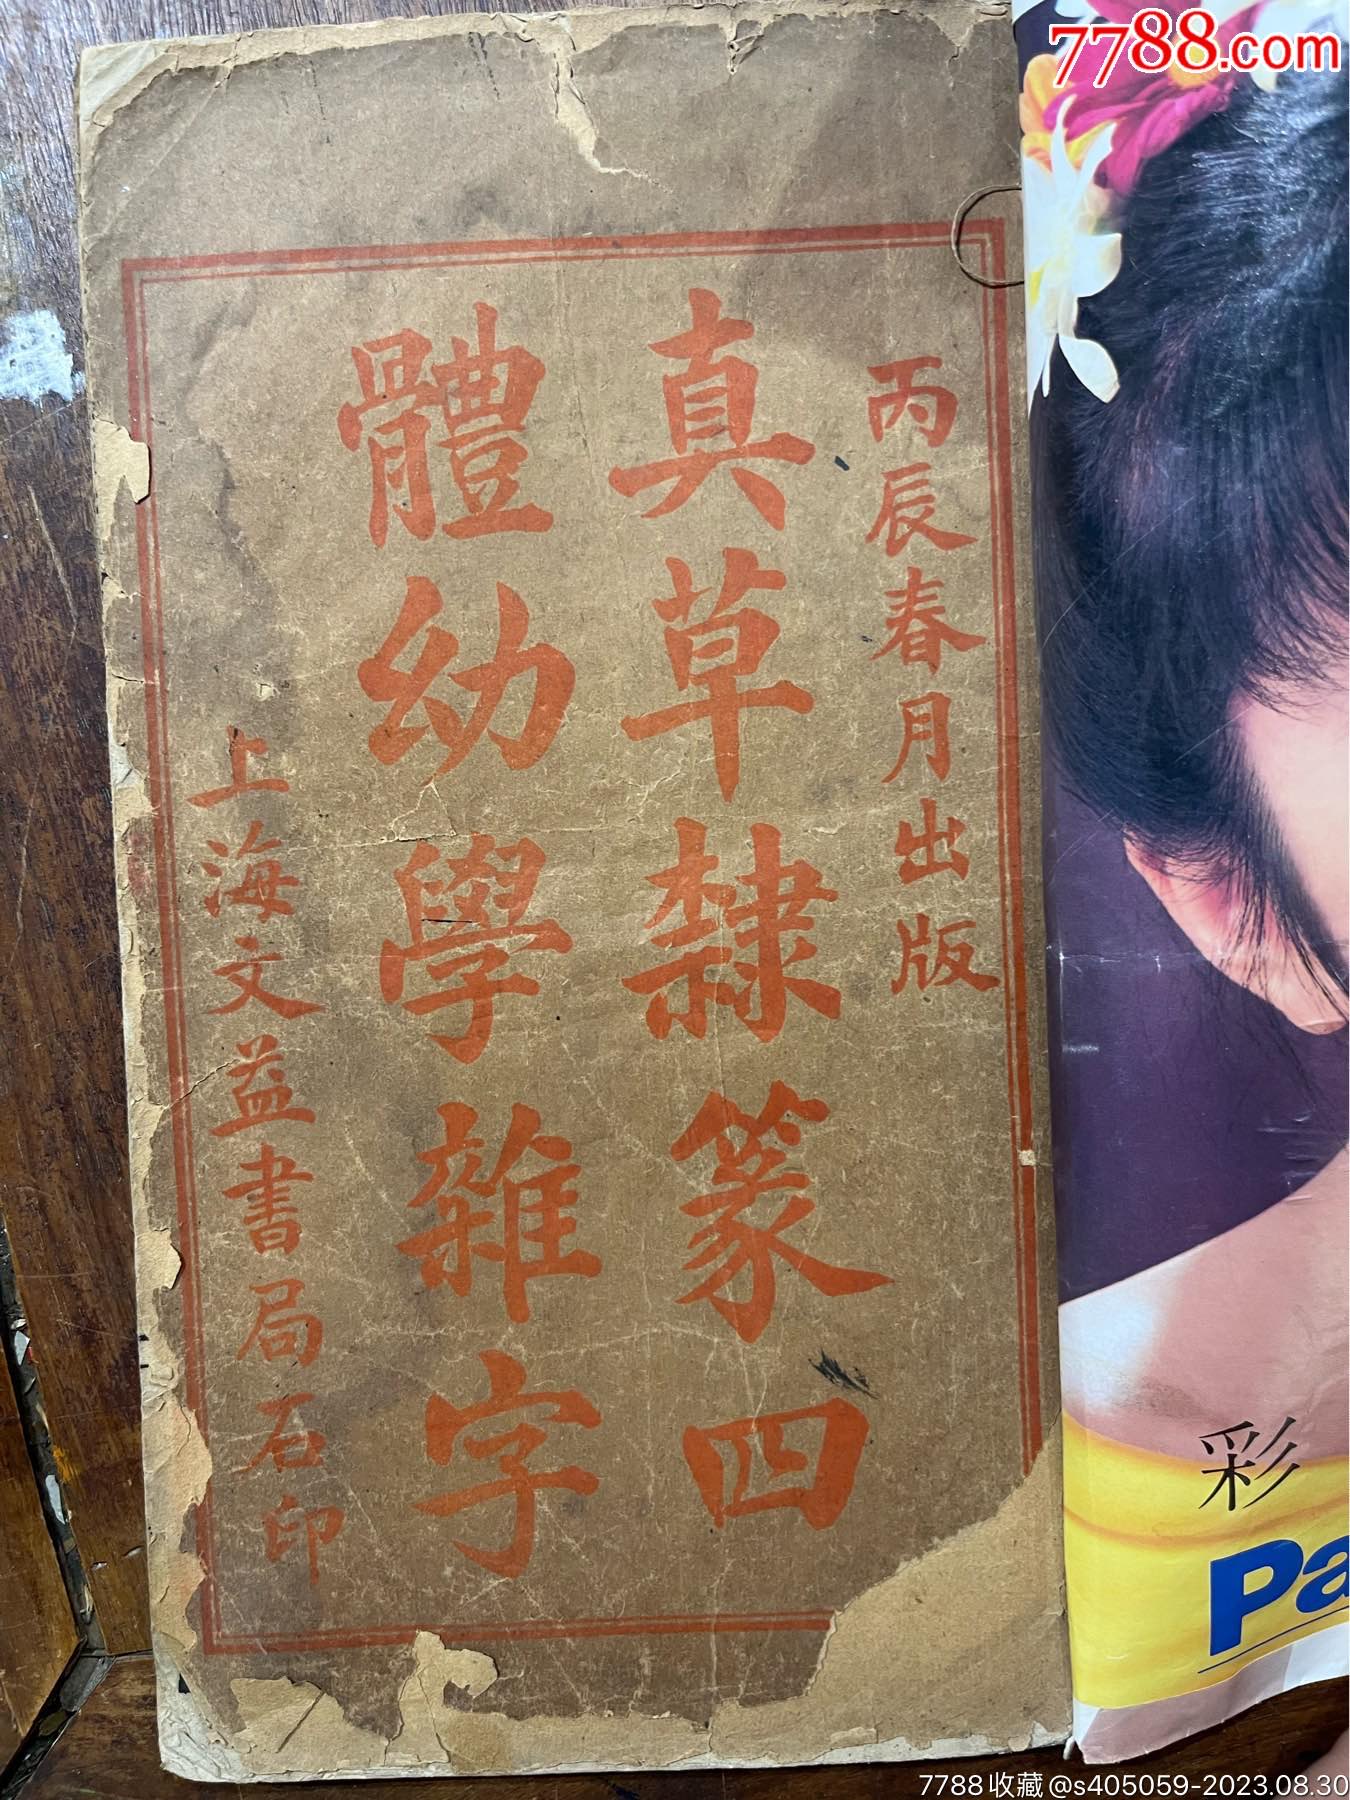 7788.com
丙辰春月出版
真草隸篆四
體幼學雜字
上海文益書局石印
彩
Pa
7788收藏@s405059-2023.08.30